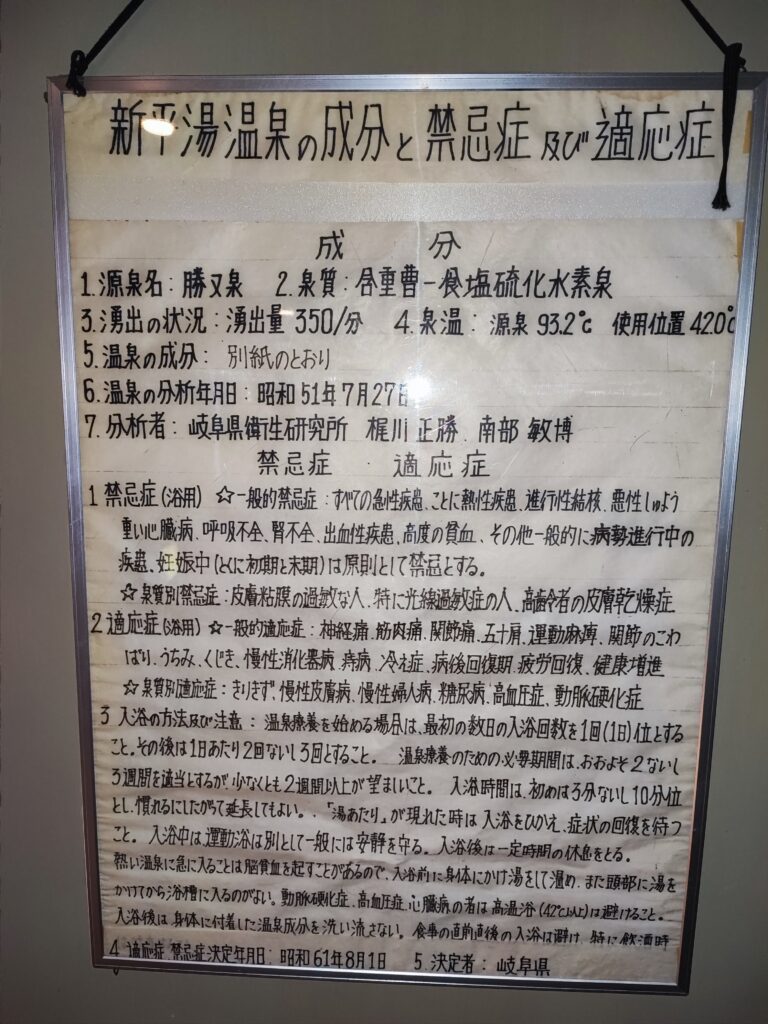 新平湯温泉の成分と禁忌症及び適応症
成 分
1.源泉名：勝又泉 2.泉質：含重曹一食塩硫化水素泉
3.湧出の状況：湧出量 350/分 4.泉温：源泉 93.2°c 使用位置 42.0°c
5.温泉の成分：別紙のとおり
6.温泉の分析年月日：昭和51年7月27日
7.分析者：岐阜県衛生研究所 梶川正勝、南部敏博
禁忌症 ・ 適応症
1 禁忌症(浴用) ☆一般的禁忌症：すべての急性疾患、ことに熱性疾患、進行性結核、悪性しゅよう
重い心臓病、呼吸不全、腎不全、出血性疾患、高度の貧血、その他一般的に病勢進行中の
疾患、妊娠中(とくに初期と末期)は原則として禁忌とする。
☆泉質別禁忌症：皮膚粘膜の過敏な人、特に光線過敏症の人、高齢者の皮膚乾燥症
2 適応症(浴用) ☆一般的適応症：神経痛、筋肉痛、関節痛、五十肩、運動麻痺、関節のこわ
ばり、うちみ、くじき、慢性消化器病、痔病、冷え症、病後回復期、疲労回復、健康増進
☆泉質別適応症：きりきず、慢性皮膚病、慢性婦人病、糖尿病、高血圧症、動脈硬化症
3 入浴の方法及び注意：温泉療養を始める場合は、最初の数日の入浴回数を1回(1日)位とする
こと。その後は1日あたり2回ないし3回とすること。 温泉療養のための必要期間は、おおよそ2ないし
3週間を適当とするが、少なくとも2週間以上が望ましいこと。 入浴時間は、初めは3分ないし10分位
とし、慣れるにしたがって延長してもよい。・「湯あたり」が現れた時は入浴をひかえ、症状の回復を待つ
こと。入浴中は、運動浴は別として一般には安静を守る。入浴後は一定時間の休息をとる。
熱い温泉に急に入ることは脳貧血を起すことがあるので、入浴前に身体にかけ湯をして温め、また頭部に湯を
かけてから浴槽に入るのがない。動脈硬化症、高血圧症、心臓病の者は高温浴(42℃以上)は避けること。
入浴後は身体に付着した温泉成分を洗い流さない。食事の直前直後の入浴は避け、特に飲酒時
4 適応症、禁忌症決定年月日：昭和61年8月1日 5.決定者：岐阜県